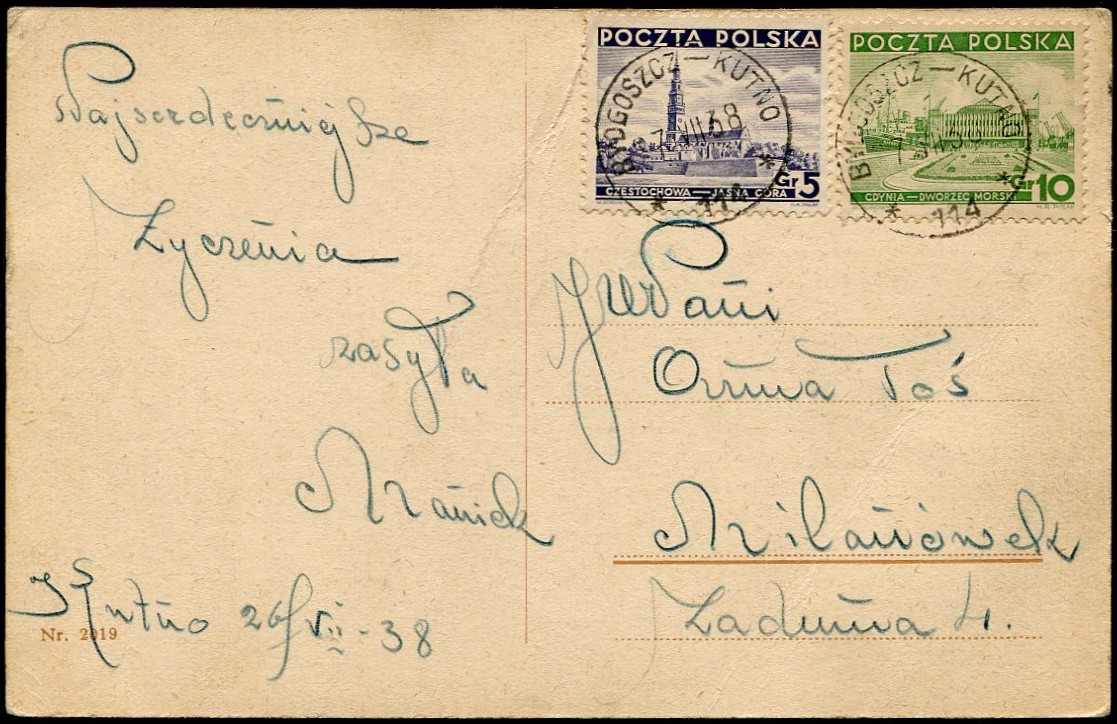 Najserdeczniejsze
Życzenia
zasyła
Maniek
Kutno 26/VII-38
Nr. 2019
POCZTA POLSKA
CZĘSTOCHOWA — JASNA GÓRA
Gr 5
POCZTA POLSKA
GDYNIA — DWORZEC MORSKI
Gr 10
BYDGOSZCZ — KUTNO
7 VII 38
* 114 *
BYDGOSZCZ — KUTNO
* 114 *
JWPani
Anna Toś
Milanówek
Ładna 4.